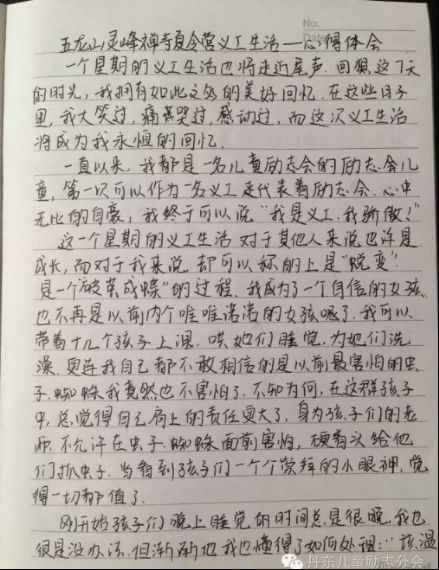 No.
Date
五龙山灵峰禅寺夏令营义工生活——心得体会
一个星期的义工生活也将走近尾声.回想这7天
的时光,我拥有如此之多的美好回忆.在这些日子
里,我大笑过,痛哭过,感动过,而这次义工生活
将成为我永恒的回忆.
一直以来,我都是一名儿童励志会的励志会儿
童,第一次可以作为一名义工是代表着励志会.心中
无比的自豪,我终于可以说“我是义工,我骄傲!”
这一个星期的义工生活对于其他人来说也许是
成长,而对于我来说却可以称的上是“蜕变”.
是一个“破茧成蝶”的过程.我成为了一个自信的女孩
也不再是以前内个唯唯诺诺的女孩喽了.我可以
带着十几个孩子上课,哄她们睡觉,为她们洗
澡.更连我自己都不敢相信的是以前最害怕的虫
子.蜘蛛我竟然也不害怕了.不知为何,在这群孩子
中,总觉得自己肩上的责任更大了,身为孩子们的老
师.不允许在虫子.蜘蛛面前害怕,硬着头给他
们抓虫子.当看到孩子们一个个崇拜的小眼神,觉
得一切都值了.
刚开始孩子们晚上睡觉的时间总是很晚,我也
很是没办法.但渐渐地我也懂得了如何处理:“该温
丹东儿童励志分会